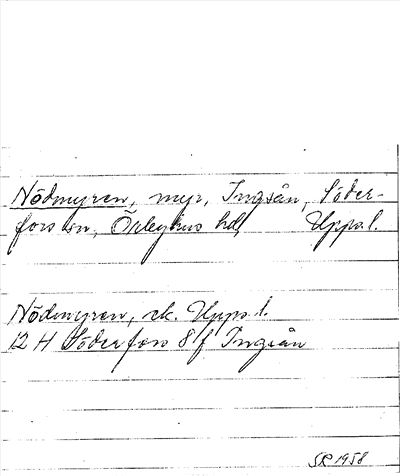 Nödmyren, myr, Ingsån, Söder-
fors sn, Örbyhus hd, Upps.l.
Nödmyren, ek. Upps.l.
12 H Söderfors 8f Ingsån
SR 1958